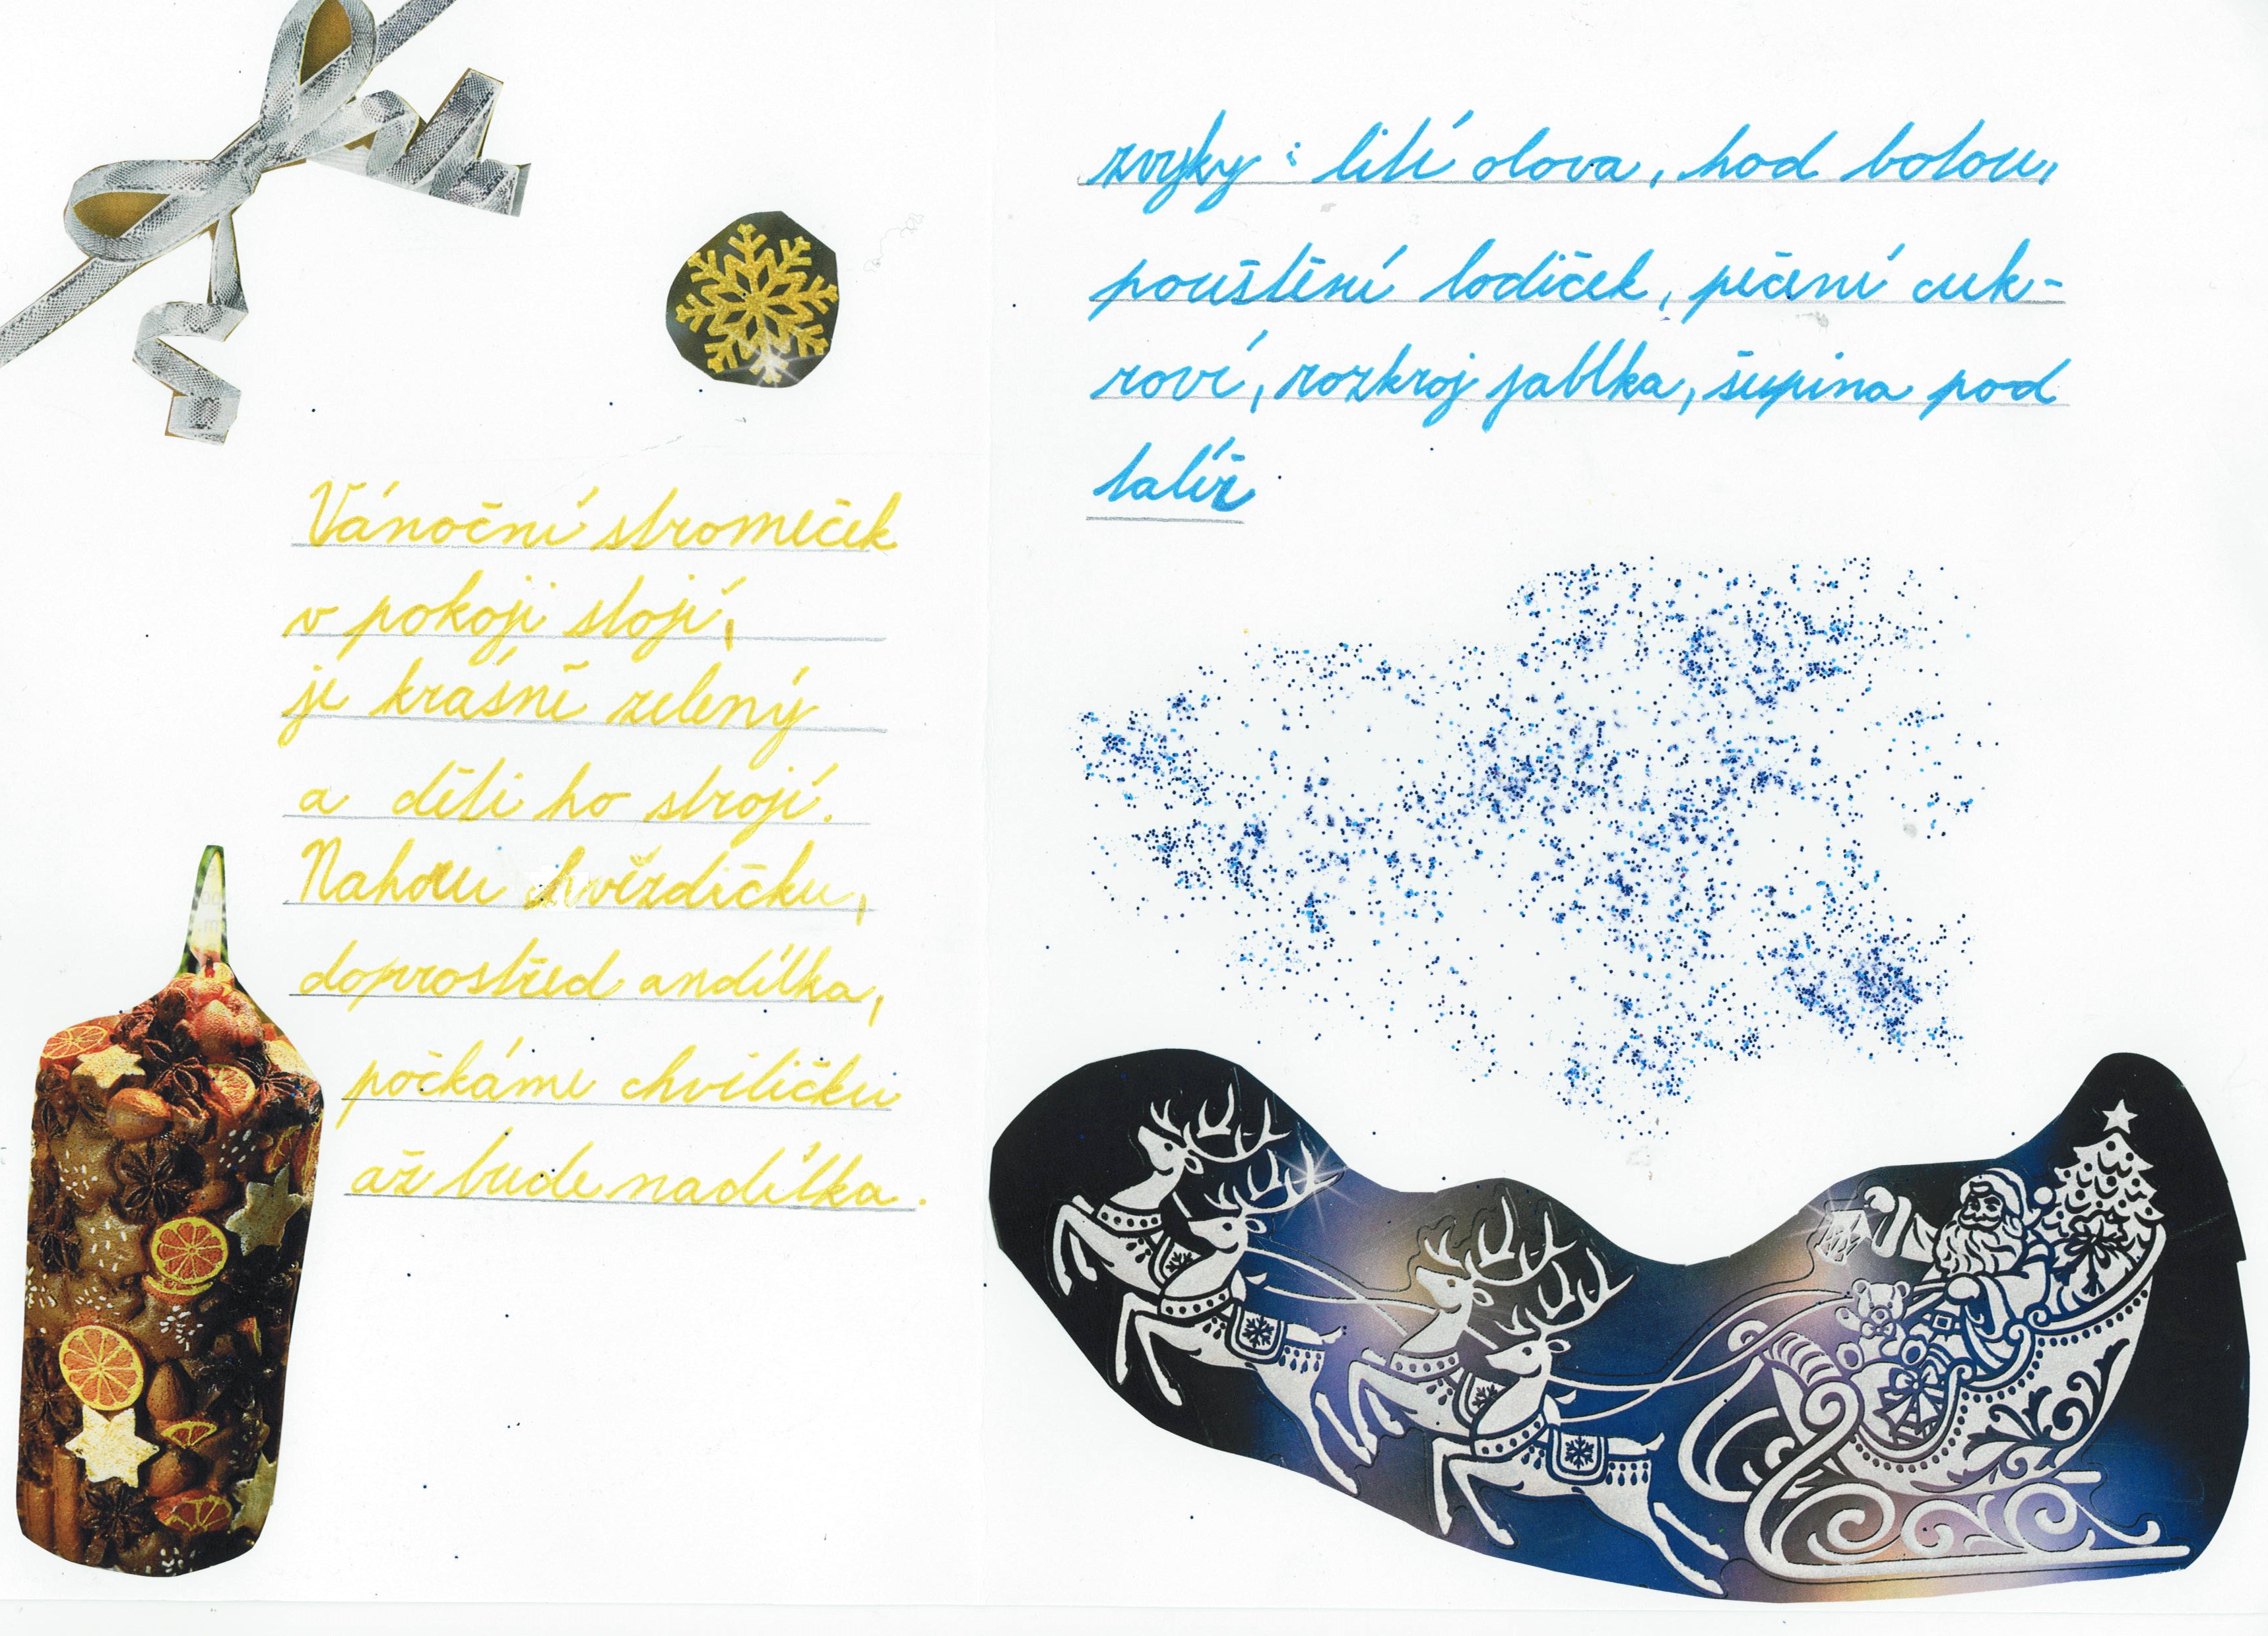 Vánoční stromeček
v pokoji stojí,
je krásně zelený
a děti ho strojí.
Nahoru hvězdičku,
doprostřed andílka,
počkáme chviličku
až bude nadílka.
zvyky: lití olova, hod botou,
pouštění lodiček, pečení cuk-
roví, rozkroj jablka, šupina pod
talíř